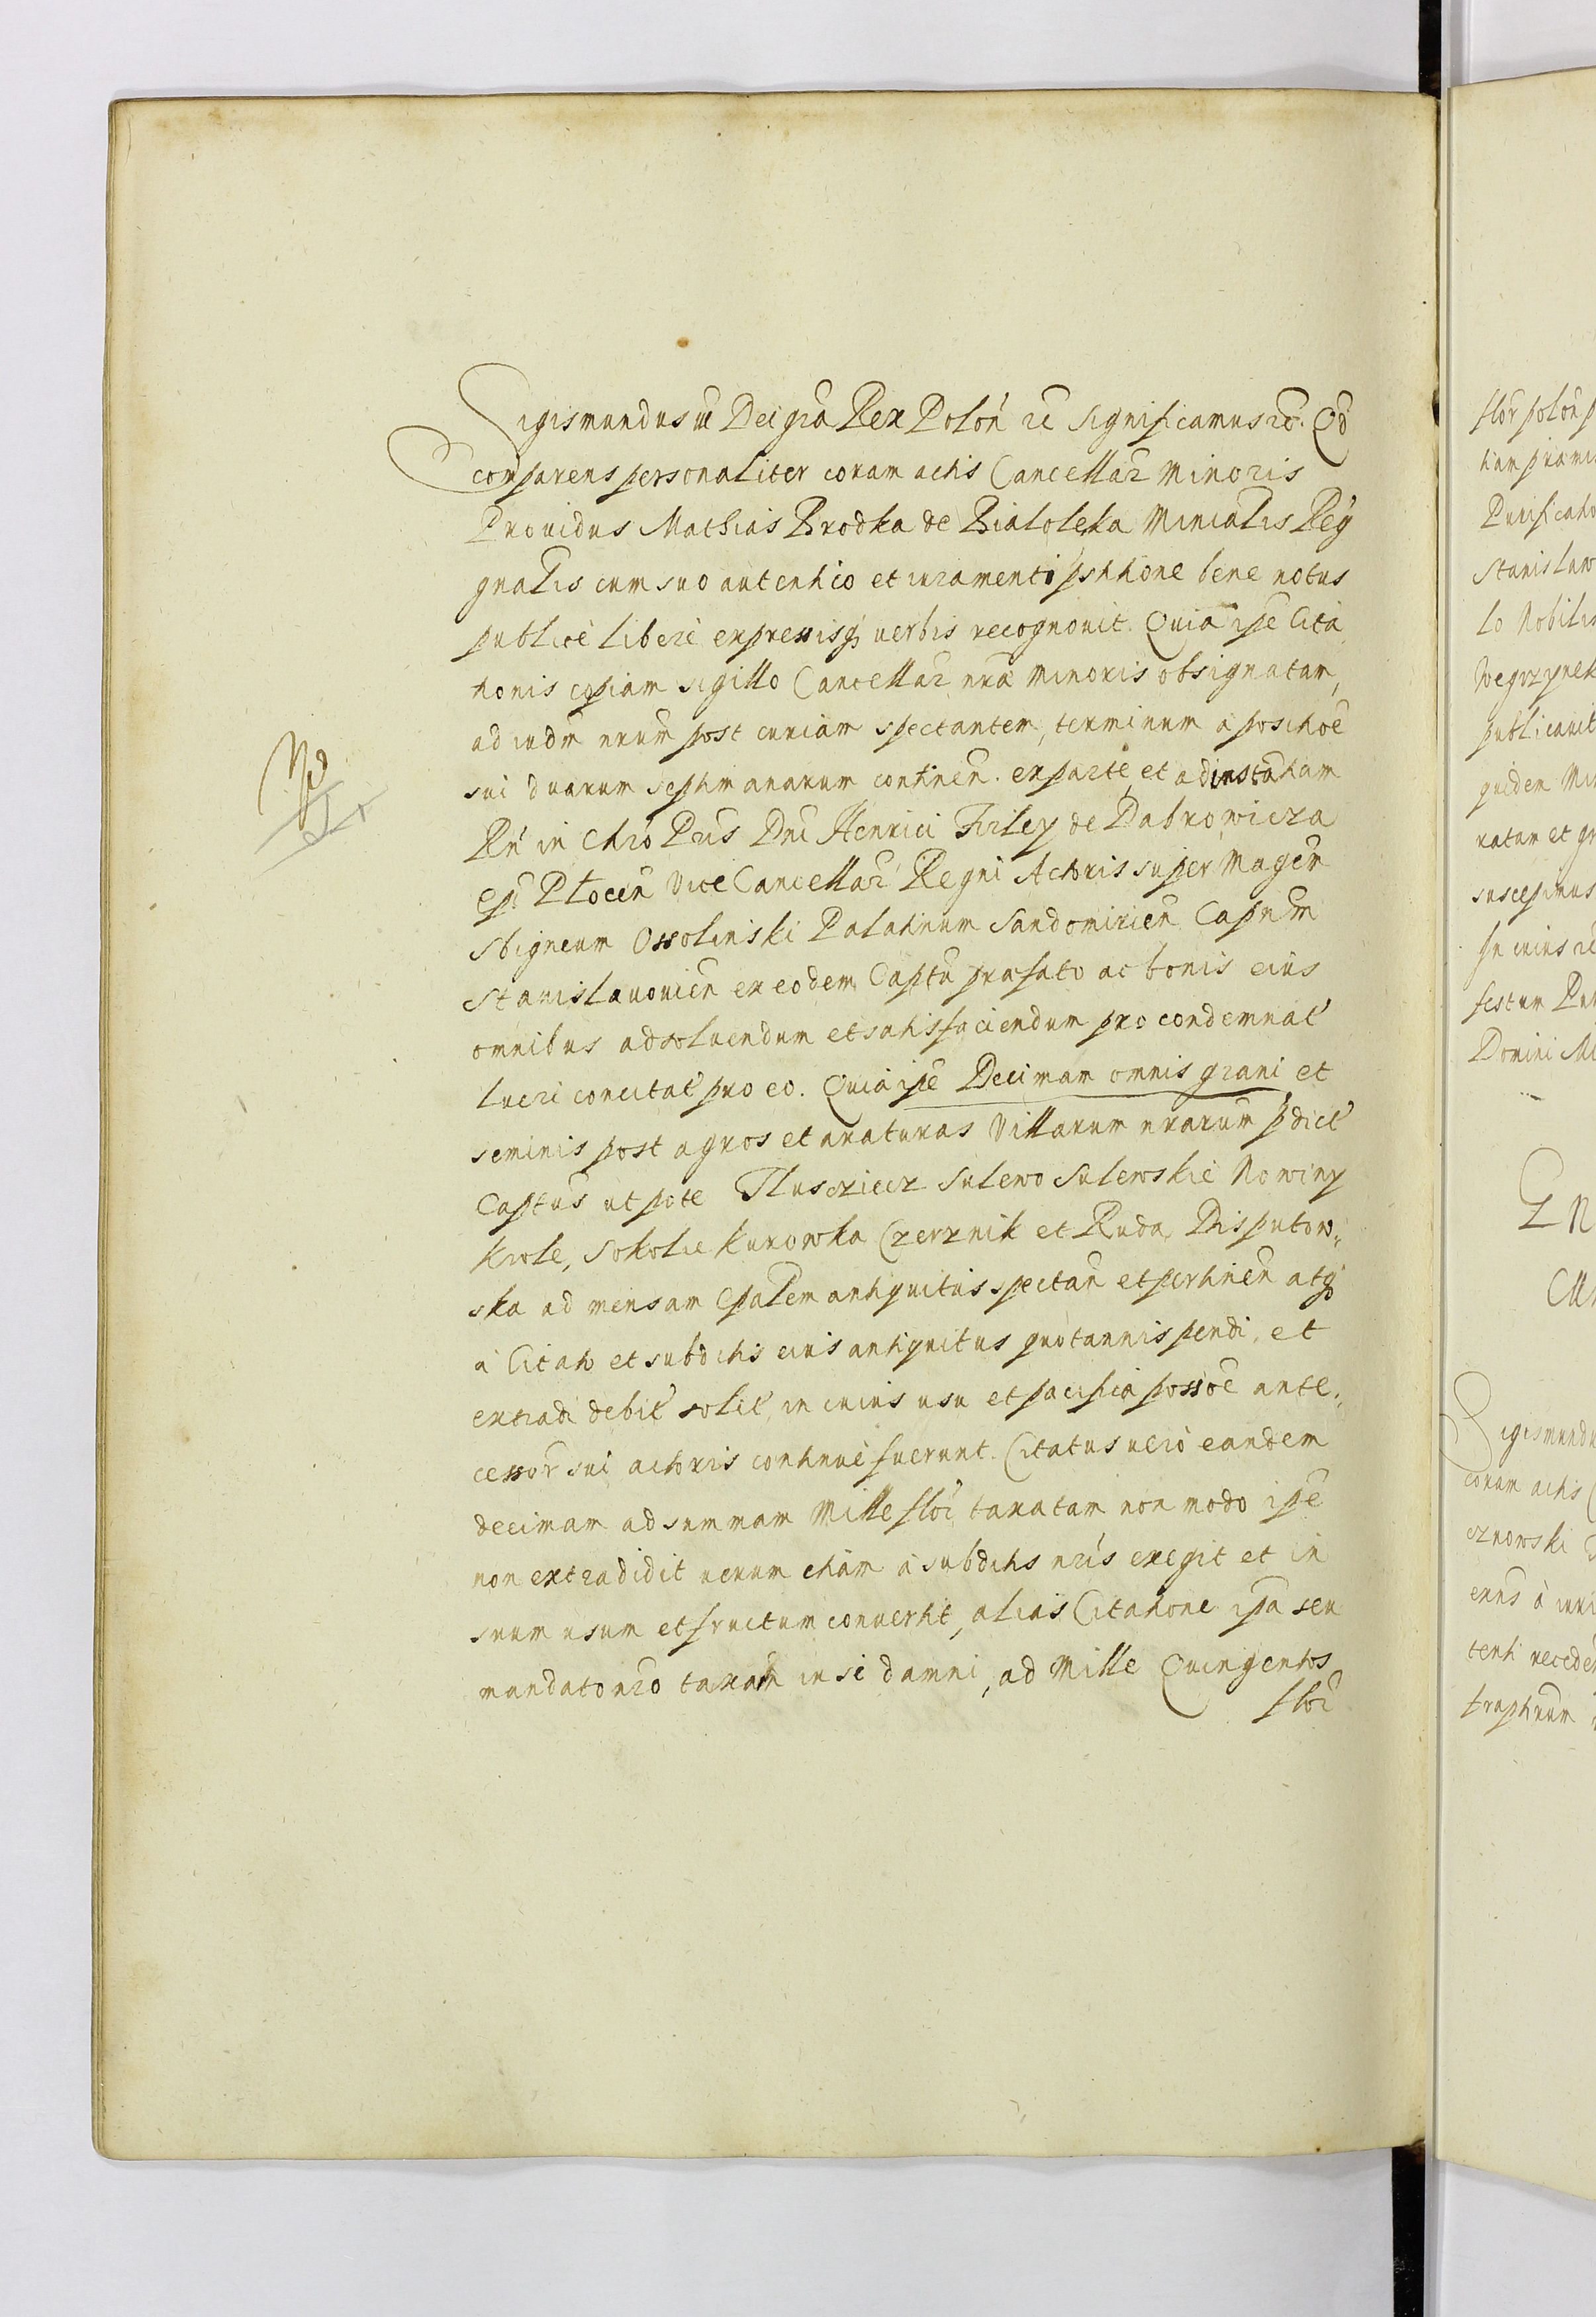 Sigismundus III Dei gra Rex Polon etc Significamus etc. Qd
comparens personaliter coram actis Cancellar Minoris
Prouidus Mathias Brodka de Bialoleka Minialis Reg
gnalis cum suo autentico et iuramenti pstitione bene notus
publice libere expressisq uerbis recognouit. Quia ipse Cita
tionis copiam sigillo Cancellar nrae minoris obsignatam,
ad iudm nrum post curiam spectantem, terminum a positioe
sui duarum septimanarum continen. ex parte et ad instantiam
Rn in Chro Pris Dni Henrici Firley de Dabrowicza
Epi Plocen Vice Cancellar Regni Actoris super Magcum
Sbigneum Ossolinski Palatinum Sandomirien Capneum
Stanislauouien ex eodem Captu praefato ac bonis eius
omnibus ad soluendum et satisfaciendum pro condemnat
lucri concitat pro eo. Quia ipse Decimam omnis grani et
seminis post agros et araturas Villarum nrarum pdict
Captus utpote Tluscziecz Sulewo Sulewskie Nowiny
Krole, Sokolie Kurowka Czerznik et Ruda, Disputow
ska ad mensam Epalem antiquitus spectan et pertinen atq
a Citato et subditis eius antiquitus quotannis pendi, et
extradi debit solit, in cuius usu et pacifica possoe ante
cessor sui actoris continue fuerunt. Citatus uero eandem
decimam ad summam Mille flor taxatam non modo ipse
non extradidit uerum etiam a subditis nris exegit et in
suum usum et fructum conuertit, alias Citatione ipsa seu
mandato nro taxam in se damni, ad Mille Quingentos
flor
flor polon
Purificatio
Stanislaw
lo Nobili
Wegrzynek
publicauit
quidem
ratum et
suscepimus
In cuius
festum
Domini
Sigismundu
coram actis
cznowski